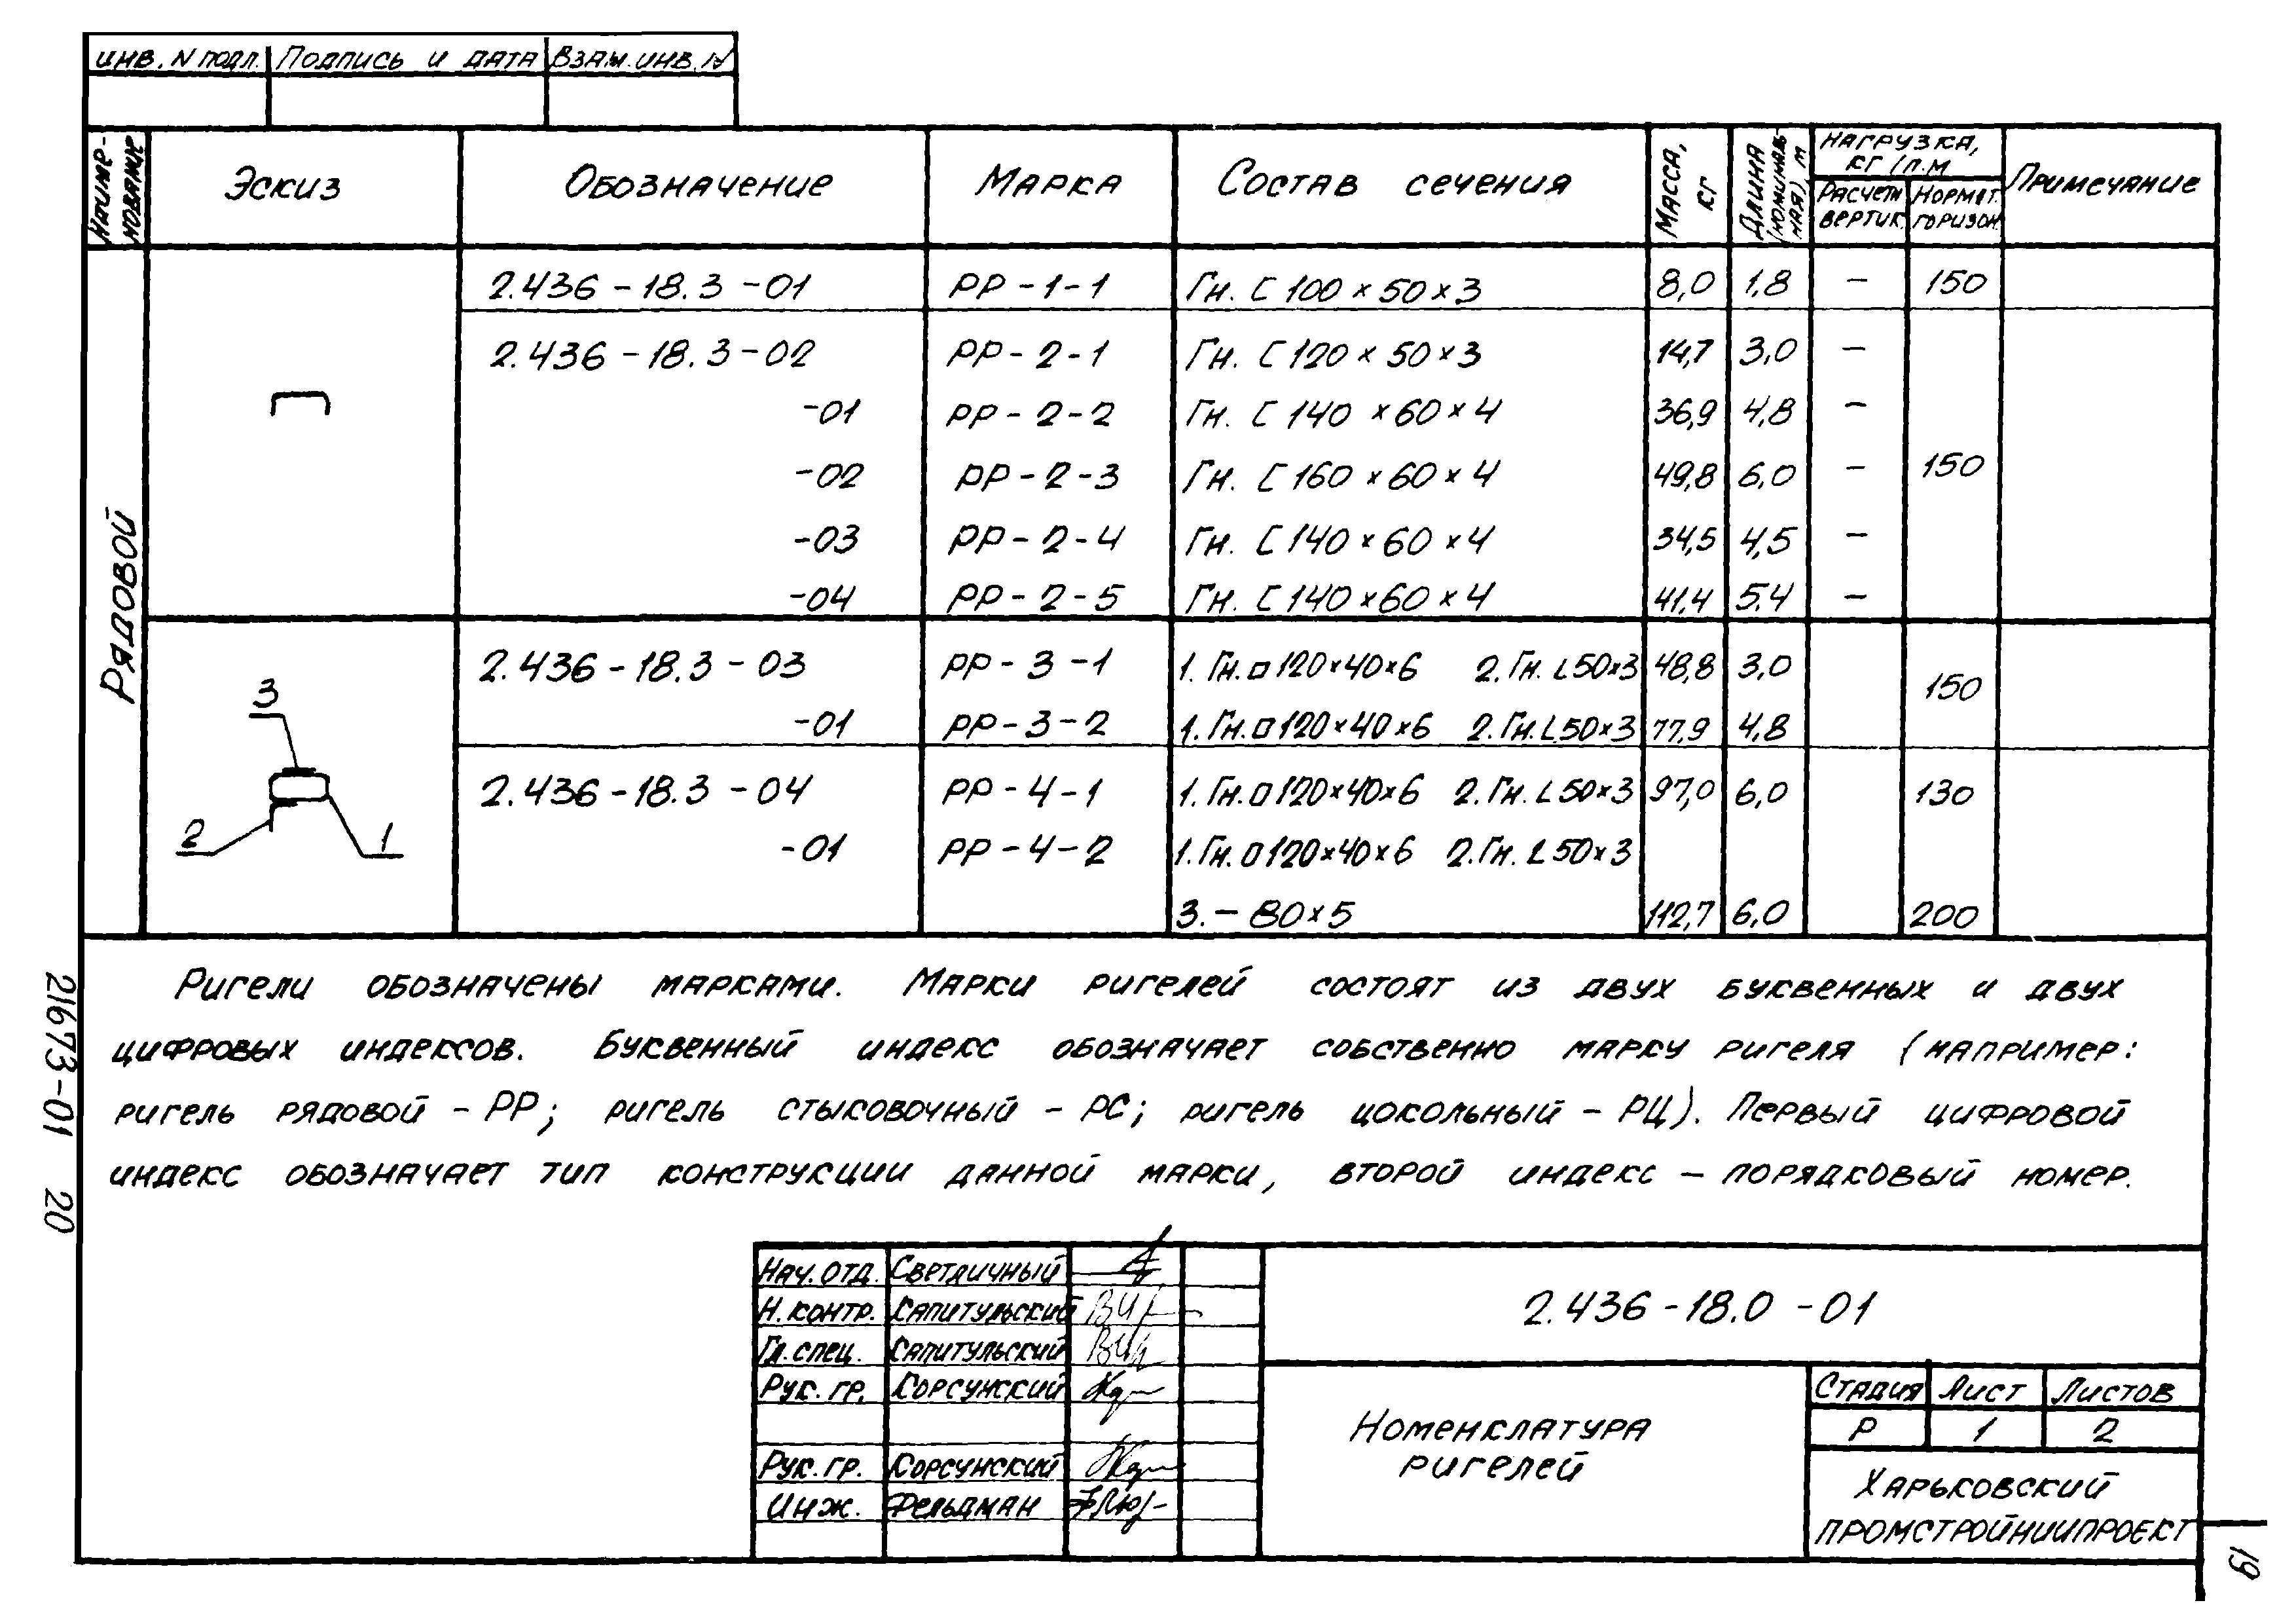 инв. N подл. Подпись и дата Взам. инв. N
Наиме-нование Эскиз Обозначение Марка Состав сечения Масса, кг Длина (номинальная), м Нагрузка, кг/п.м Примечание
Расчетн. вертик. Нормат. горизон.
Рядовой
2.436-18.3-01 РР-1-1 Гн. [ 100×50×3 8,0 1,8 - 150
2.436-18.3-02 РР-2-1 Гн. [ 120×50×3 14,7 3,0 -
-01 РР-2-2 Гн. [ 140×60×4 36,9 4,8 -
-02 РР-2-3 Гн. [ 160×60×4 49,8 6,0 - 150
-03 РР-2-4 Гн. [ 140×60×4 34,5 4,5 -
-04 РР-2-5 Гн. [ 140×60×4 41,4 5.4 -
2.436-18.3-03 РР-3-1 1. Гн. □ 120×40×6 2. Гн. L 50×3 48,8 3,0 150
-01 РР-3-2 1. Гн. □ 120×40×6 2. Гн. L 50×3 77,9 4,8
2.436-18.3-04 РР-4-1 1. Гн. □ 120×40×6 2. Гн. L 50×3 97,0 6,0 130
-01 РР-4-2 1. Гн. □ 120×40×6 2. Гн. L 50×3
3. - 80×5 112,7 6,0 200
3
2 1
Ригели обозначены марками. Марки ригелей состоят из двух буквенных и двух
цифровых индексов. Буквенный индекс обозначает собственно марку ригеля (например:
ригель рядовой - РР; ригель стыковочный - РС; ригель цокольный - РЦ). Первый цифровой
индекс обозначает тип конструкции данной марки, второй индекс - порядковый номер.
21673-01 20
Нач. отд. Светличный
Н. контр. Капитульский
Гл. спец. Капитульский
Рук. гр. Корсунский
Рук. гр. Корсунский
Инж. Фельдман
2.436-18.0-01
Номенклатура
ригелей
Стадия Лист Листов
Р 1 2
Харьковский
ПРОМСТРОЙНИИПРОЕКТ
19